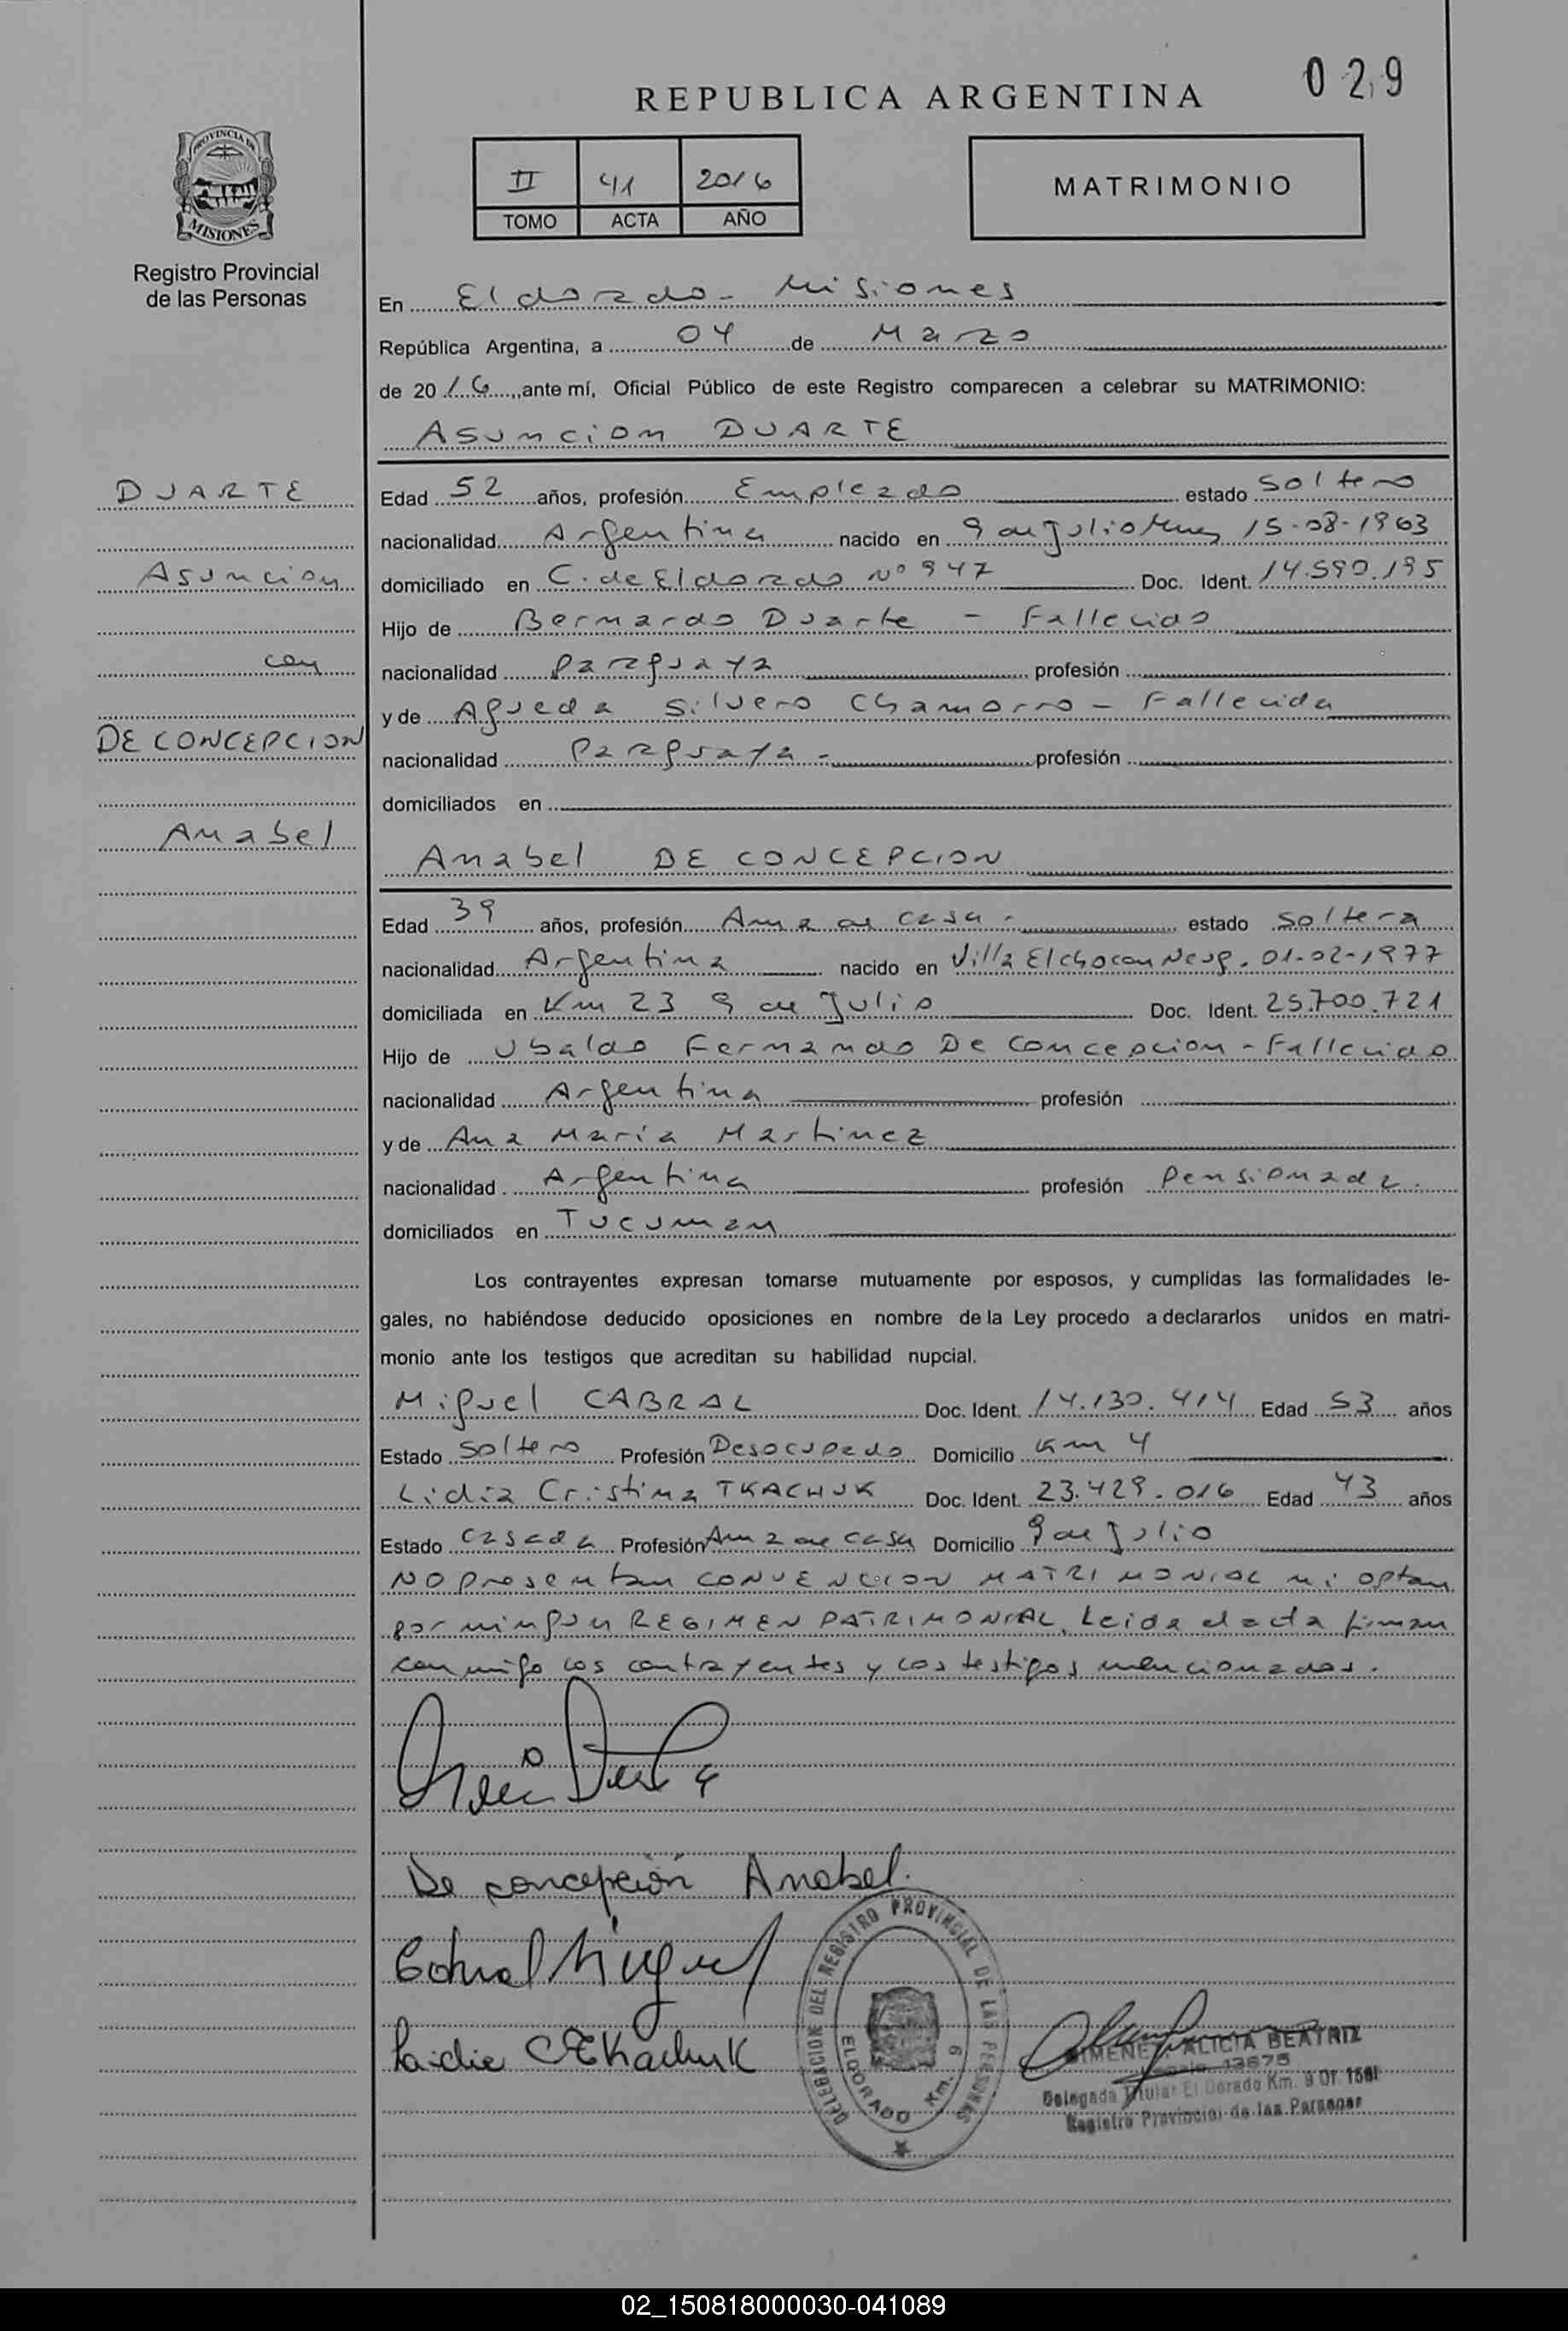 029
REPUBLICA ARGENTINA
II 41 2016
TOMO ACTA AÑO
MATRIMONIO
PROVINCIA DE
MISIONES
Registro Provincial
de las Personas
En Eldorado - Misiones
República Argentina, a 04 de Marzo
de 2016, ante mí, Oficial Público de este Registro comparecen a celebrar su MATRIMONIO:
Asuncion DUARTE
DUARTE
Asuncion
con
DE CONCEPCION
Anabel
Edad 52 años, profesión Empleado estado soltero
nacionalidad Argentina nacido en 9 de Julio Mnes 15-08-1963
domiciliado en C. de Eldorado Nº 947 Doc. Ident. 14.590.195
Hijo de Bernardo Duarte - Fallecido
nacionalidad Paraguaya profesión
y de Agueda Silvero Chamorro - Fallecida
nacionalidad Paraguaya - profesión
domiciliados en
Anabel DE CONCEPCION
Edad 39 años, profesión Ama de casa - estado soltera
nacionalidad Argentina nacido en Villa El chocon Neuq. 01-02-1977
domiciliada en Km 23 9 de Julio Doc. Ident. 25.700.721
Hijo de Ubaldo Fernando De Concepcion - Fallecido
nacionalidad Argentina profesión
y de Ana María Martinez
nacionalidad Argentina profesión Pensionada.
domiciliados en Tucuman
Los contrayentes expresan tomarse mutuamente por esposos, y cumplidas las formalidades le-
gales, no habiéndose deducido oposiciones en nombre de la Ley procedo a declararlos unidos en matri-
monio ante los testigos que acreditan su habilidad nupcial.
Miguel CABRAL Doc. Ident. 14.130.414 Edad 53 años
Estado soltero Profesión Desocupado Domicilio Km 4
Lidia Cristina TKACHUK Doc. Ident. 23.429.016 Edad 43 años
Estado casada Profesión Ama de casa Domicilio 9 de Julio
NO presentan CONVENCION MATRIMONIAL ni optan
por ningun REGIMEN PATRIMONIAL. Leida el acta firman
conmigo los contrayentes y los testigos mencionados.
De concepción Anabel.
Cabral Miguel
Lidia C Tkachuk
DELEGACION DEL REGISTRO PROVINCIAL DE LAS PERSONAS
ELDORADO Km. 9
GIMENEZ ALICIA BEATRIZ
13675
Delegada Titular El Dorado Km. 9 Of. 1581
Registro Provincial de las Personas
02_150818000030-041089